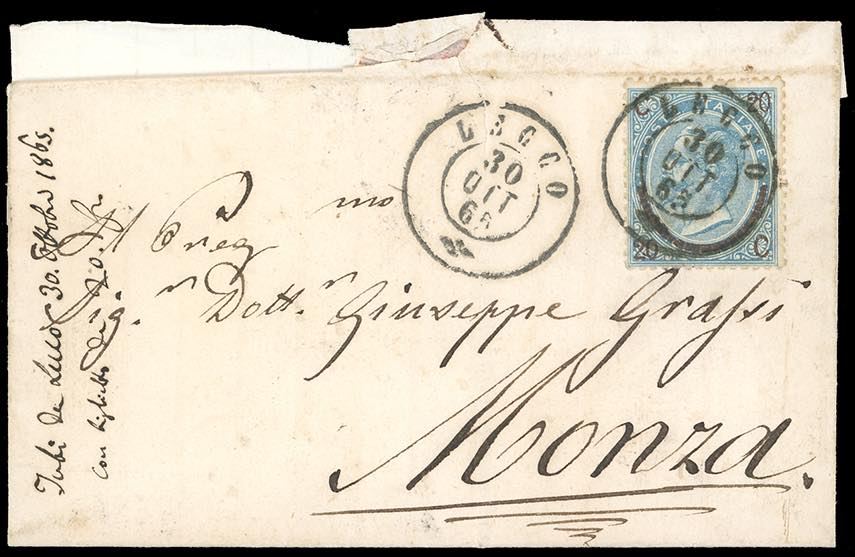 LECCO
30
OTT
65
20
C
20
C
E ITALIANE
LECCO
30
OTT
65
Al Preg mo
Sig.r Dott.r Giuseppe Grassi
Monza.
da Lecco 30. Ottobre 1865.
con biglietto di